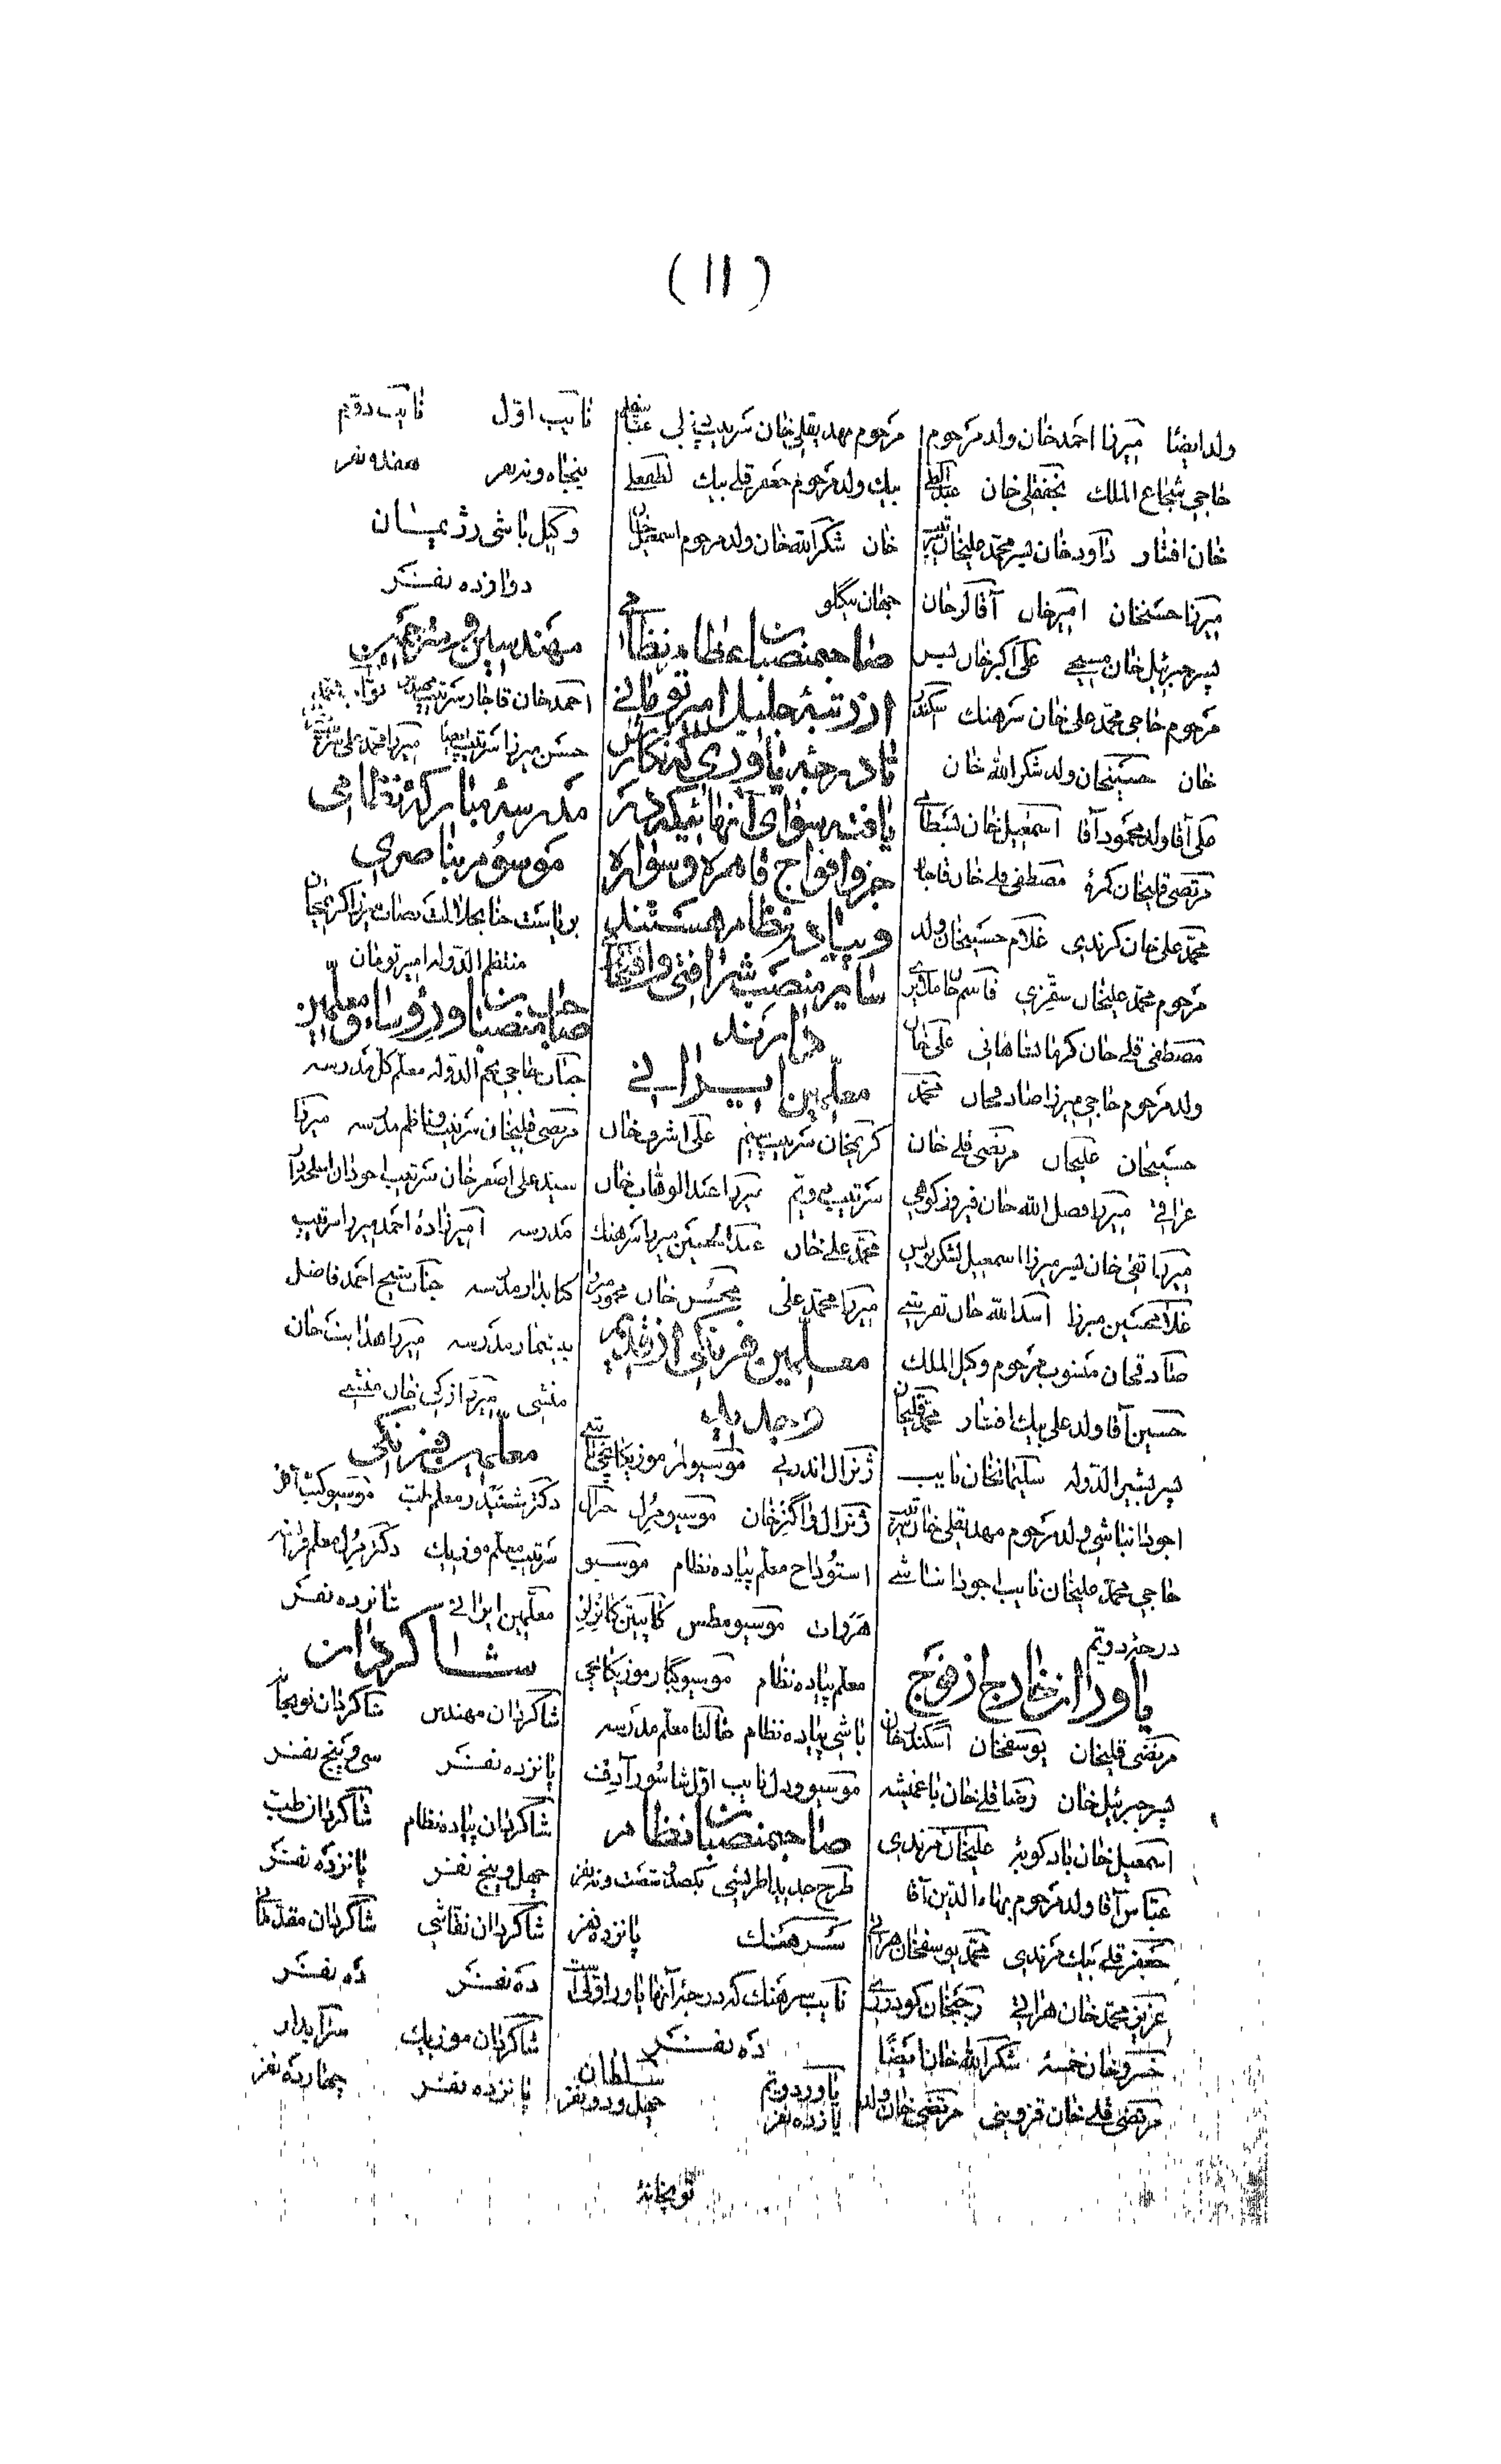 ( ۱۱ )
ولد ایضا میرزا احمد خان ولد مرحوم
حاجی شجاع الملک نجفقلی خان
خان افشار داود خان پسر محمد علیخان
میرزا حسنخان امیرخان آقا لر خان
پسر جبرئیل خان مسیحی علی اکبر خان پسر
مرحوم حاجی محمد علی خان سرهنک اسکندر
خان حسینخان ولد شکرالله خان
ملکی آقا ولد محمود آقا اسمعیل خان بسطامی
مرتضی قلیخان کمرهٔ مصطفی قلی خان قاجار
محمد علی خان کرندی غلام حسینخان ولد
مرحوم محمد علیخان سقزی قاسم خان ملایری
مصطفی قلی خان کرمانشاهانی علی خان
ولد مرحوم حاجی میرزا صادقخان محمد
حسینخان علیخان مرتضی قلی خان
عراقی میرزا فضل الله خان فیروز کوهی
میرزا تقی خان پسر میرزا اسمعیل لشکر نویس
غلامحسین میرزا اسدالله خان
صادقخان منسوب مرحوم وکیل الملک
حسین آقا ولد علی بیک افشار محمد قلیخان
پسر بشیر الدوله سلیمانخان نایب
اجودانباشی ولد مرحوم مهدیقلی خان
حاجی محمد علیخان نایب اجودانباشی
درجه دویم
یاوران خارج از فوج
مرتضی قلیخان یوسفخان اسکندر خان
پسر جبرئیل خان رضا قلی خان باغمیشه
اسمعیل خان بادکوبهٔ علیخان مرندی
عباس آقا ولد مرحوم بهاء الدین آقا
جعفر قلی بیک مرندی محمد یوسفخان هراتی
عزیز محمد خان هراتی رجبخان کودرزی
خسرو خان خمسهٔ شکرالله خان ایضا
مرتضی قلی خان قزوینی مرتضی خان ولد
مرحوم مهدیقلی خان
بیک ولد مرحوم جعفر قلی بیک لطفعلی
خان شکرالله خان ولد مرحوم اسمعیل خان
جهان بیکلو
صاحبمنصبان عظام نظامی
از رتبهٔ جلیل امیر تومانی
تا درجهٔ یاوری که نکارش
یافته سوای آنهائیکه در
جزو افواج قاهره و سواره
و پیاده نظام هستند
سایر منصب شرافتی و افتخاری
دارند
معلمین ایرانی
کریمخان سرتیپ سیم علی اشرف خان
سرتیپ دویم میرزا عبدالوهاب خان
محمد علی خان عبدالحسین میرزا سرهنک
میرزا محمد علی محسن خان محمود میرزا
معلمین فرنکی از قدیم
و جدید
ژنرال اندرینی موسیو لمر موزیکانچی
ژنرال واگنر خان موسیو مرل جنرال
استوداخ معلم پیاده نظام موسیو
هرمات موسیو مطس کاپیتن
معلم پیاده نظام موسیو گبار موزیکانچی
باشی پیاده نظام حالتا معلم مدرسه
موسیو ودل نایب اول شاسور آدرف
صاحبمنصبان نظام
طرح جدید اطریشی یکصد و شصت و نه نفر
سرهنک پانزده نفر
نایب سرهنک که درجهٔ آنها یاور اولی است
ده نفر
یاور دویم سلطان
یازده نفر چهل و دو نفر
نایب اول نایب دویم
پنجاه و نه نفر هفده نفر
وکیل باشی رژیمان
دوازده نفر
مهندسین و مترجمین
احمد خان قاجار سرتیپ
حسن میرزا سرتیپ ایضا میرزا محمد علی
مدرسهٔ مبارکهٔ نظامی
موسوم بناصری
بریاست جنابجلالتمآب میرزا کریمخان
منتظم الدوله امیر تومان
صاحبمنصبان و رؤساء و معلمین
جناب حاجی نجم الدوله معلم کل مدرسه
مرتضی قلیخان سرتیپ و ناظم مدرسه میرزا
سید علی اصغر خان سرتیپ اجودان
مدرسه امیرزاده احمد میرزا سرتیپ
کتابدار مدرسه جناب شیخ احمد فاضل
پیشنماز مدرسه میرزا هدایت خان
منشی میرزا زکی خان منشی
معلمین فرنکی
دکتر شنیدر معلم طب موسیو
سرتیپ معلم موزیک دکتر مرل معلم فرانسه
معلمین ایرانی شانزده نفر
شاکردان
شاکردان مهندس شاکردان توپخانه
پانزده نفر سی و پنج نفر
شاکردان پیاده نظام شاکردان طب
چهل و پنج نفر پانزده نفر
شاکردان نقاشی شاکردان مقدماتی
ده نفر ده نفر
شاکردان موزیک سرایدار
پانزده نفر چهارده نفر
توپخانهٔ